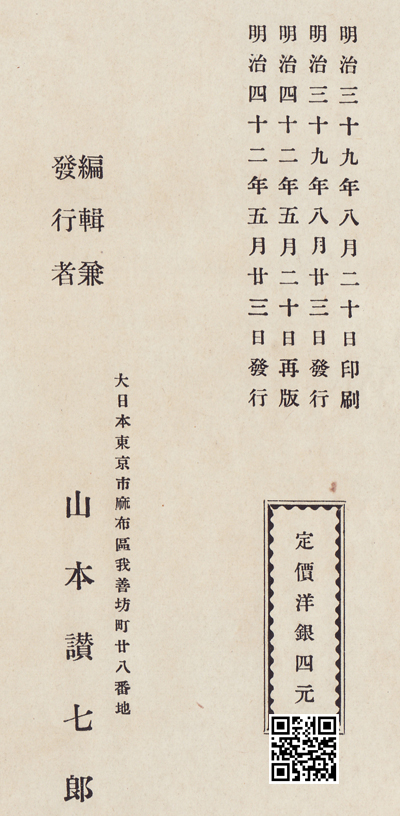 明治三十九年八月二十日印刷
明治三十九年八月廿三日發行
明治四十二年五月二十日再版
明治四十二年五月廿三日發行
定價洋銀四元
大日本東京市麻布區我善坊町廿八番地
編輯兼
發行者
山本讃七郎